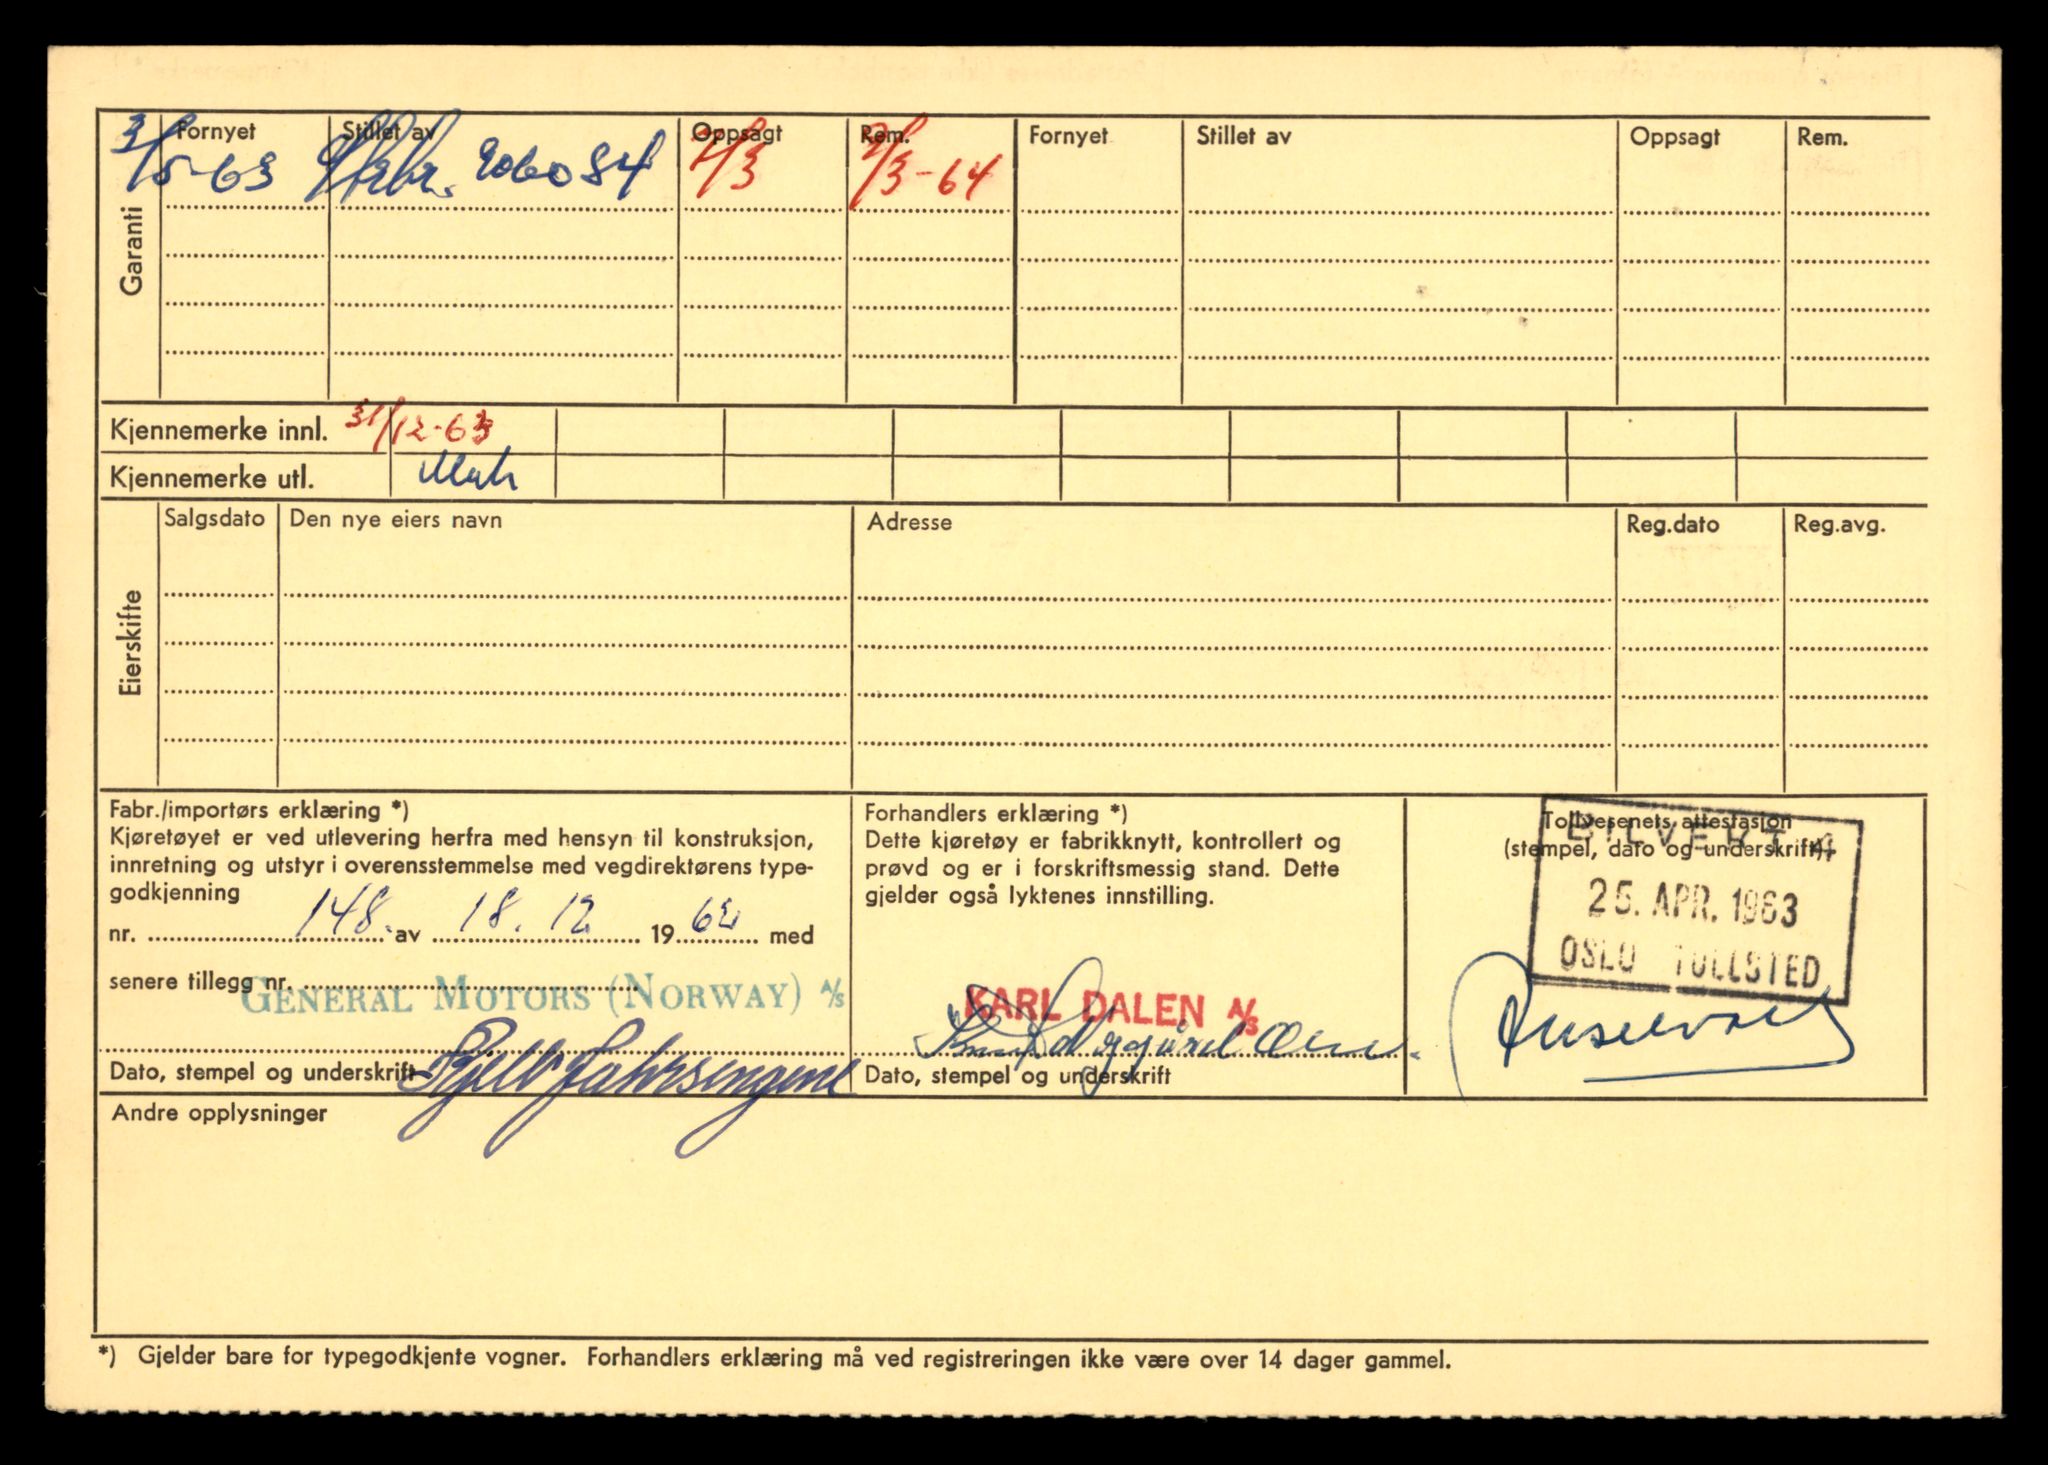 Garanti
Fornyet Stillet av Oppsagt Rem. Fornyet Stillet av Oppsagt Rem.
3/5-63 2/3 2/3-64
Kjennemerke innl. 31/12-63
Kjennemerke utl.
Eierskifte
Salgsdato Den nye eiers navn Adresse Reg.dato Reg.avg.
Fabr./importørs erklæring *)
Kjøretøyet er ved utlevering herfra med hensyn til konstruksjon,
innretning og utstyr i overensstemmelse med vegdirektørens type-
godkjenning
nr. 148. av 18.12 1962 med
senere tillegg nr.
GENERAL MOTORS (NORWAY) A/S
Dato, stempel og underskrift
Forhandlers erklæring *)
Dette kjøretøy er fabrikknytt, kontrollert og
prøvd og er i forskriftsmessig stand. Dette
gjelder også lyktenes innstilling.
KARL DALEN A/S
Dato, stempel og underskrift
Tollvesenets attestasjon
(stempel, dato og underskrift)
25. APR. 1963
OSLO TOLLSTED
Andre opplysninger
*) Gjelder bare for typegodkjente vogner. Forhandlers erklæring må ved registreringen ikke være over 14 dager gammel.